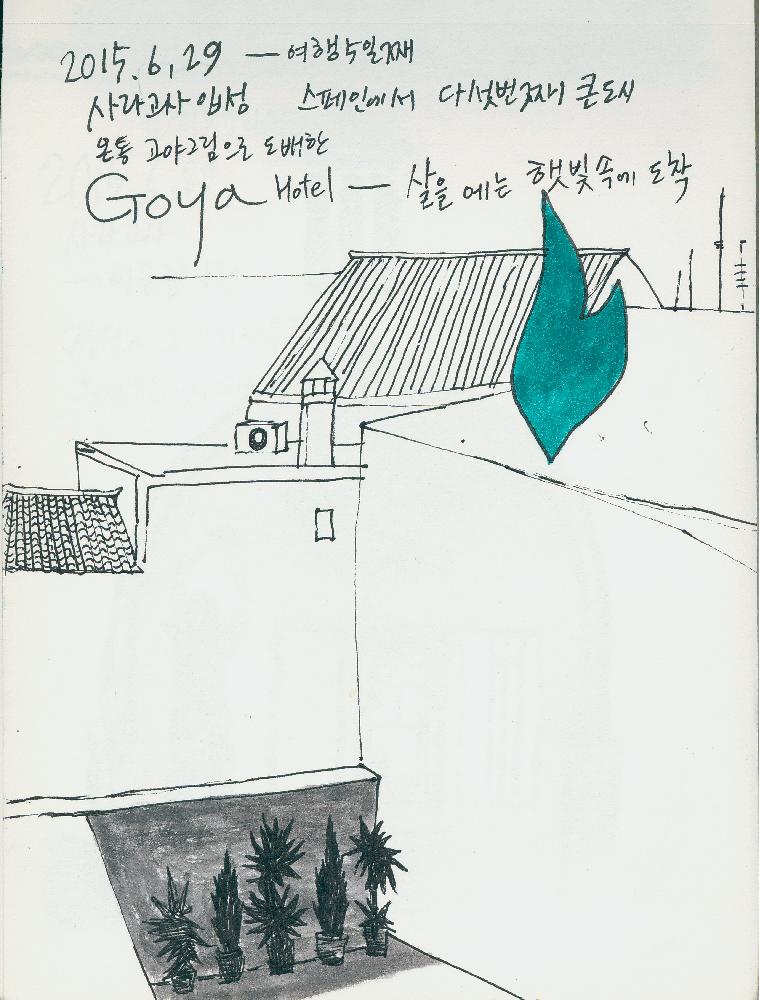 2015.6.29 — 여행 5일째
사라고사 입성 스페인에서 다섯번째 큰도시
온통 고야그림으로 도배한
Goya Hotel — 살을 에는 햇빛속에 도착